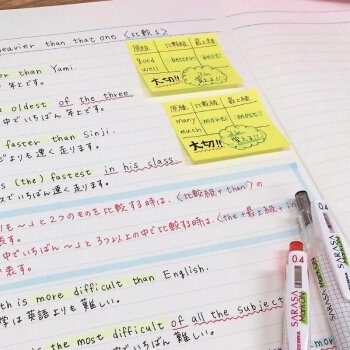 heavier than that one <比較1>
er than Yumi.
年上です。
e oldest of the three
中でいちばん年上です。
faster than Sinji.
よりも速く走ります。
s (the) fastest in his class
スでいちばん速く走ります。
原級 比較級 最上級
good
well
better best
大切!!
覚えよう!
原級 比較級 最上級
many
much
more most
大切!!
覚えよう!
りも〜」と2つのものを比較する時は、<比較級+than>の
表す。
中でいちばん〜」と3つ以上の中で比較する時は、<the+最上級+in
表す。
th is more difficult than English.
学は英語よりも難しい。
the most difficult of all the subject
いちばん難しい。
SARASA
0.4
SARASA
0.4